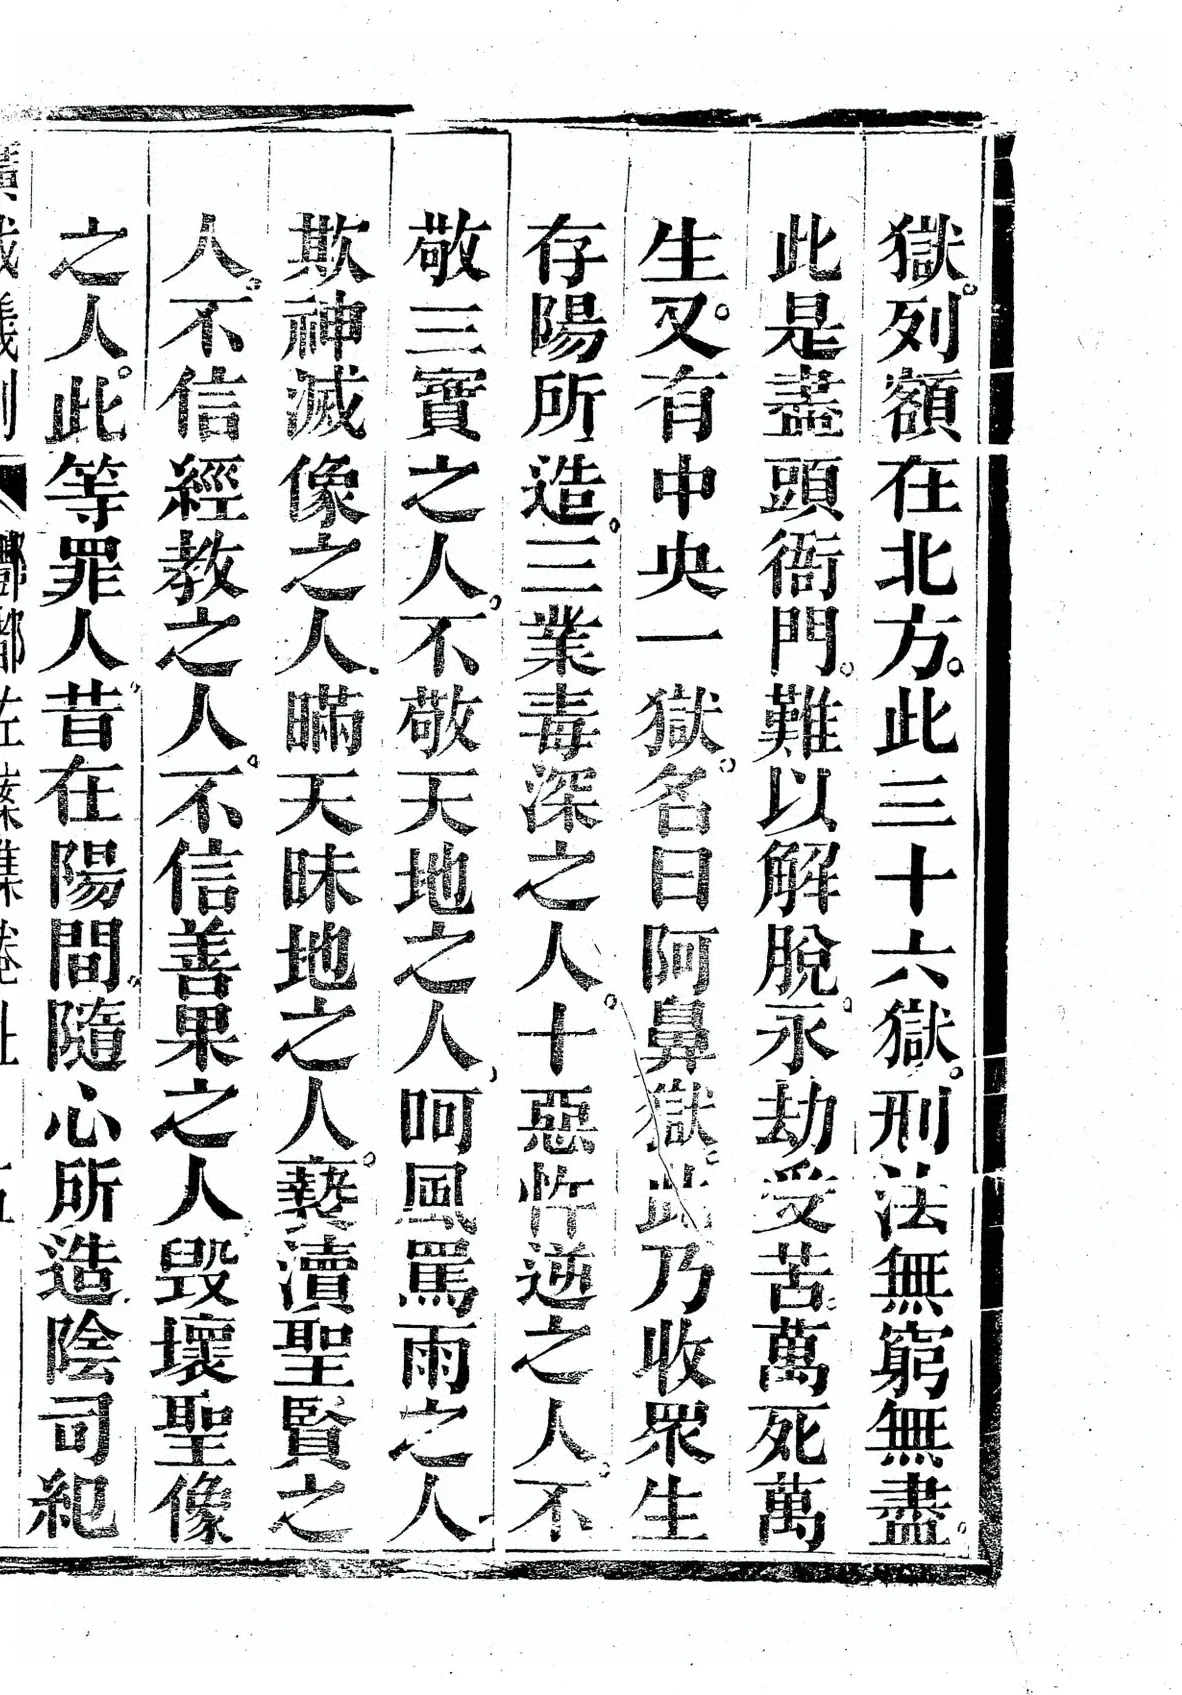 獄。列額在北方。此三十六獄。刑法無窮無盡。
此是盡頭衙門。難以解脫。永劫受苦。萬死萬
生。又有中央一獄。名曰阿鼻獄。此乃收眾生
存陽所造。三業毒深之人。十惡忤逆之人。不
敬三寶之人。不敬天地之人、呵風罵雨之人
欺神滅像之人。瞞天昧地之人。褻瀆聖賢之
人。不信經教之人。不信善果之人毀壞聖像
之人。此等罪人。昔在陽間。隨心所造。陰司紀
廣成儀制 酆都拔薦集卷上 十五